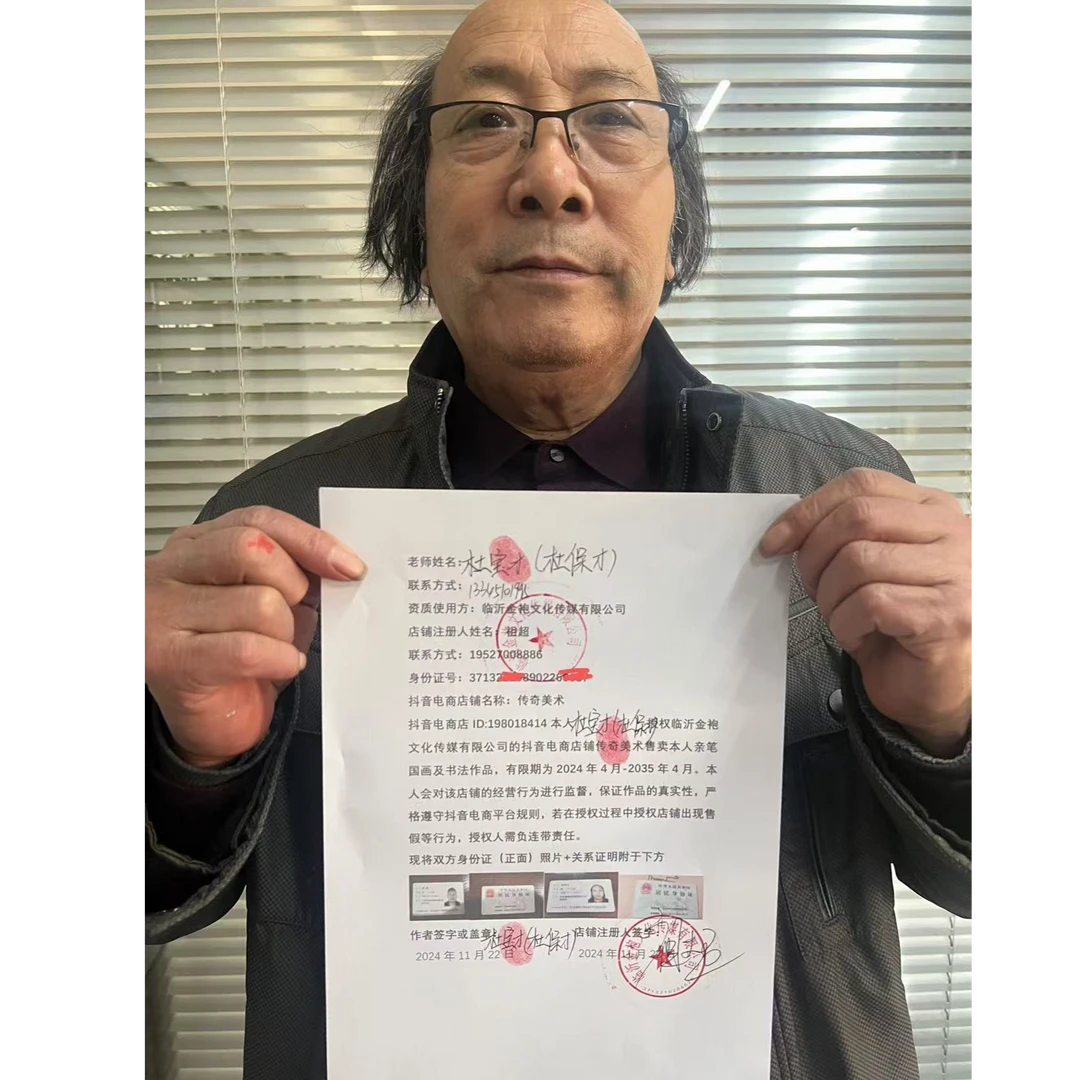 老师姓名：杜宝才（杜保才）
联系方式：
资质使用方：临沂金袍文化传媒有限公司
店铺注册人姓名：祖超
联系方式：19527008886
身份证号：3713
抖音电商店铺名称：传奇美术
抖音电商店 ID:198018414 本人杜宝才(杜保才)授权临沂金袍
文化传媒有限公司的抖音电商店铺传奇美术售卖本人亲笔
国画及书法作品，有限期为 2024 年 4 月-2035 年 4 月。本
人会对该店铺的经营行为进行监督，保证作品的真实性，严
格遵守抖音电商平台规则，若在授权过程中授权店铺出现售
假等行为，授权人需负连带责任。
现将双方身份证（正面）照片+关系证明附于下方
作者签字或盖章：杜宝才(杜保才) 店铺注册人签字：
2024 年 11 月 22 日 2024 年 11 月